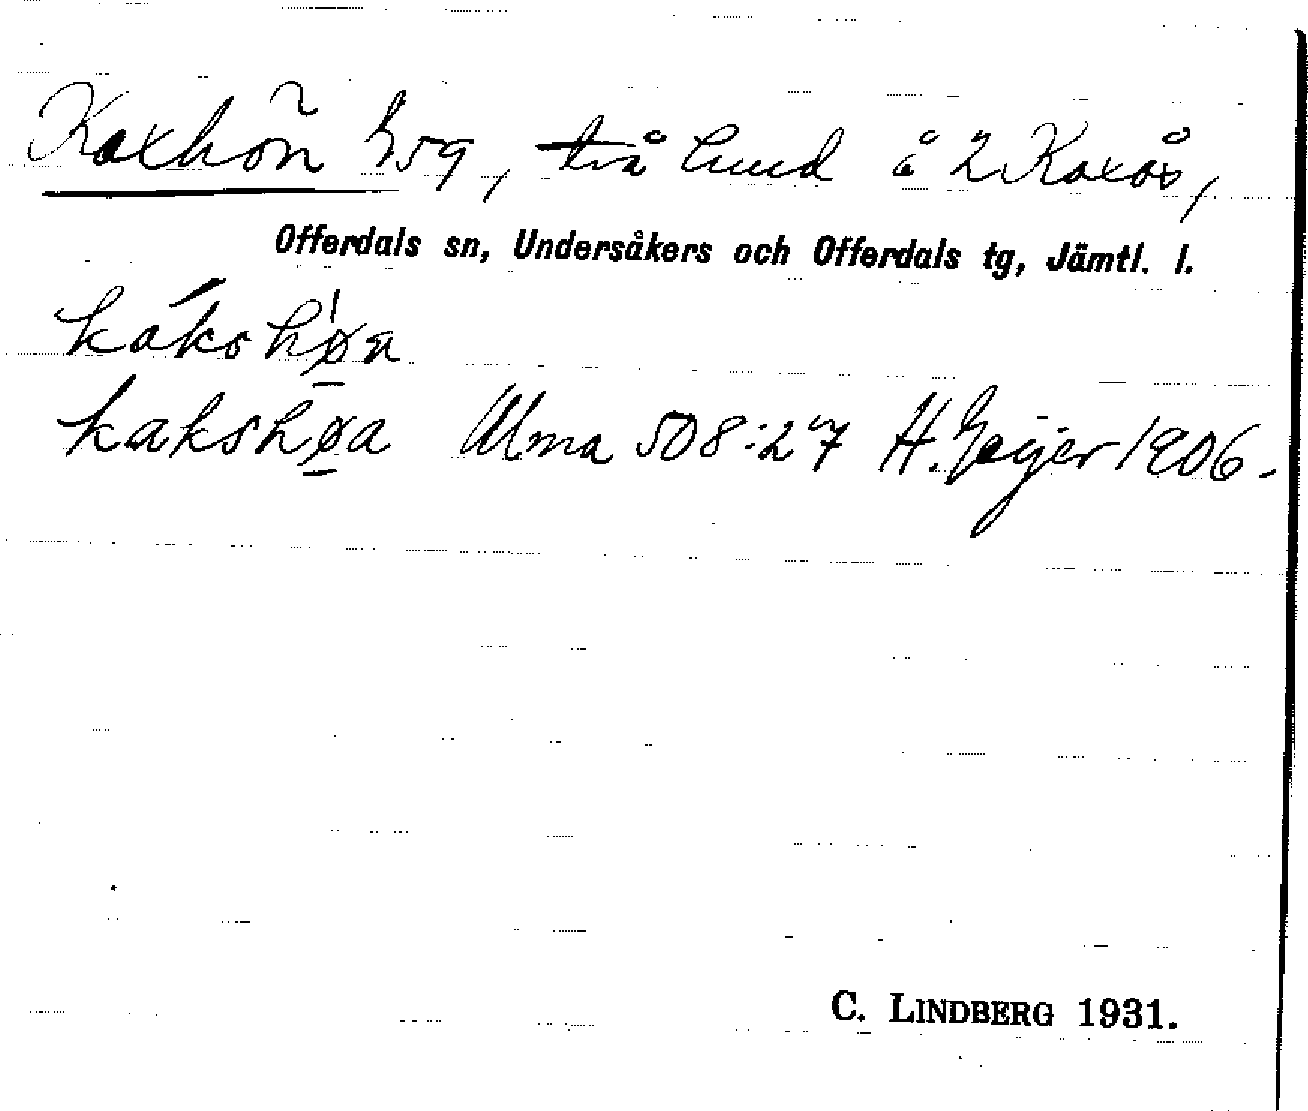 Kaxhön hsg, två lund å 2 Kaxås,
Offerdals sn, Undersåkers och Offerdals tg, Jämtl. l.
kákshø̱a
kakshø̱a Ulma 508:27 H. Geijer 1906.
C. LINDBERG 1931.